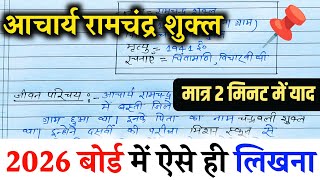 आचार्य रामचंद्र शुक्ल
मृत्यु = 1941 ई०
रचनाएँ = चिंतामणि, विचारवीथी
मात्र 2 मिनट में याद
जीवन परिचय :- आचार्य रामचंद्र
में बस्ती जिले
ग्राम हुआ था। इनके पिता का नाम चंद्रबली शुक्ल
था। इन्होंने दसवीं की परीक्षा मिशन स्कूल से
2026 बोर्ड में ऐसे ही लिखना